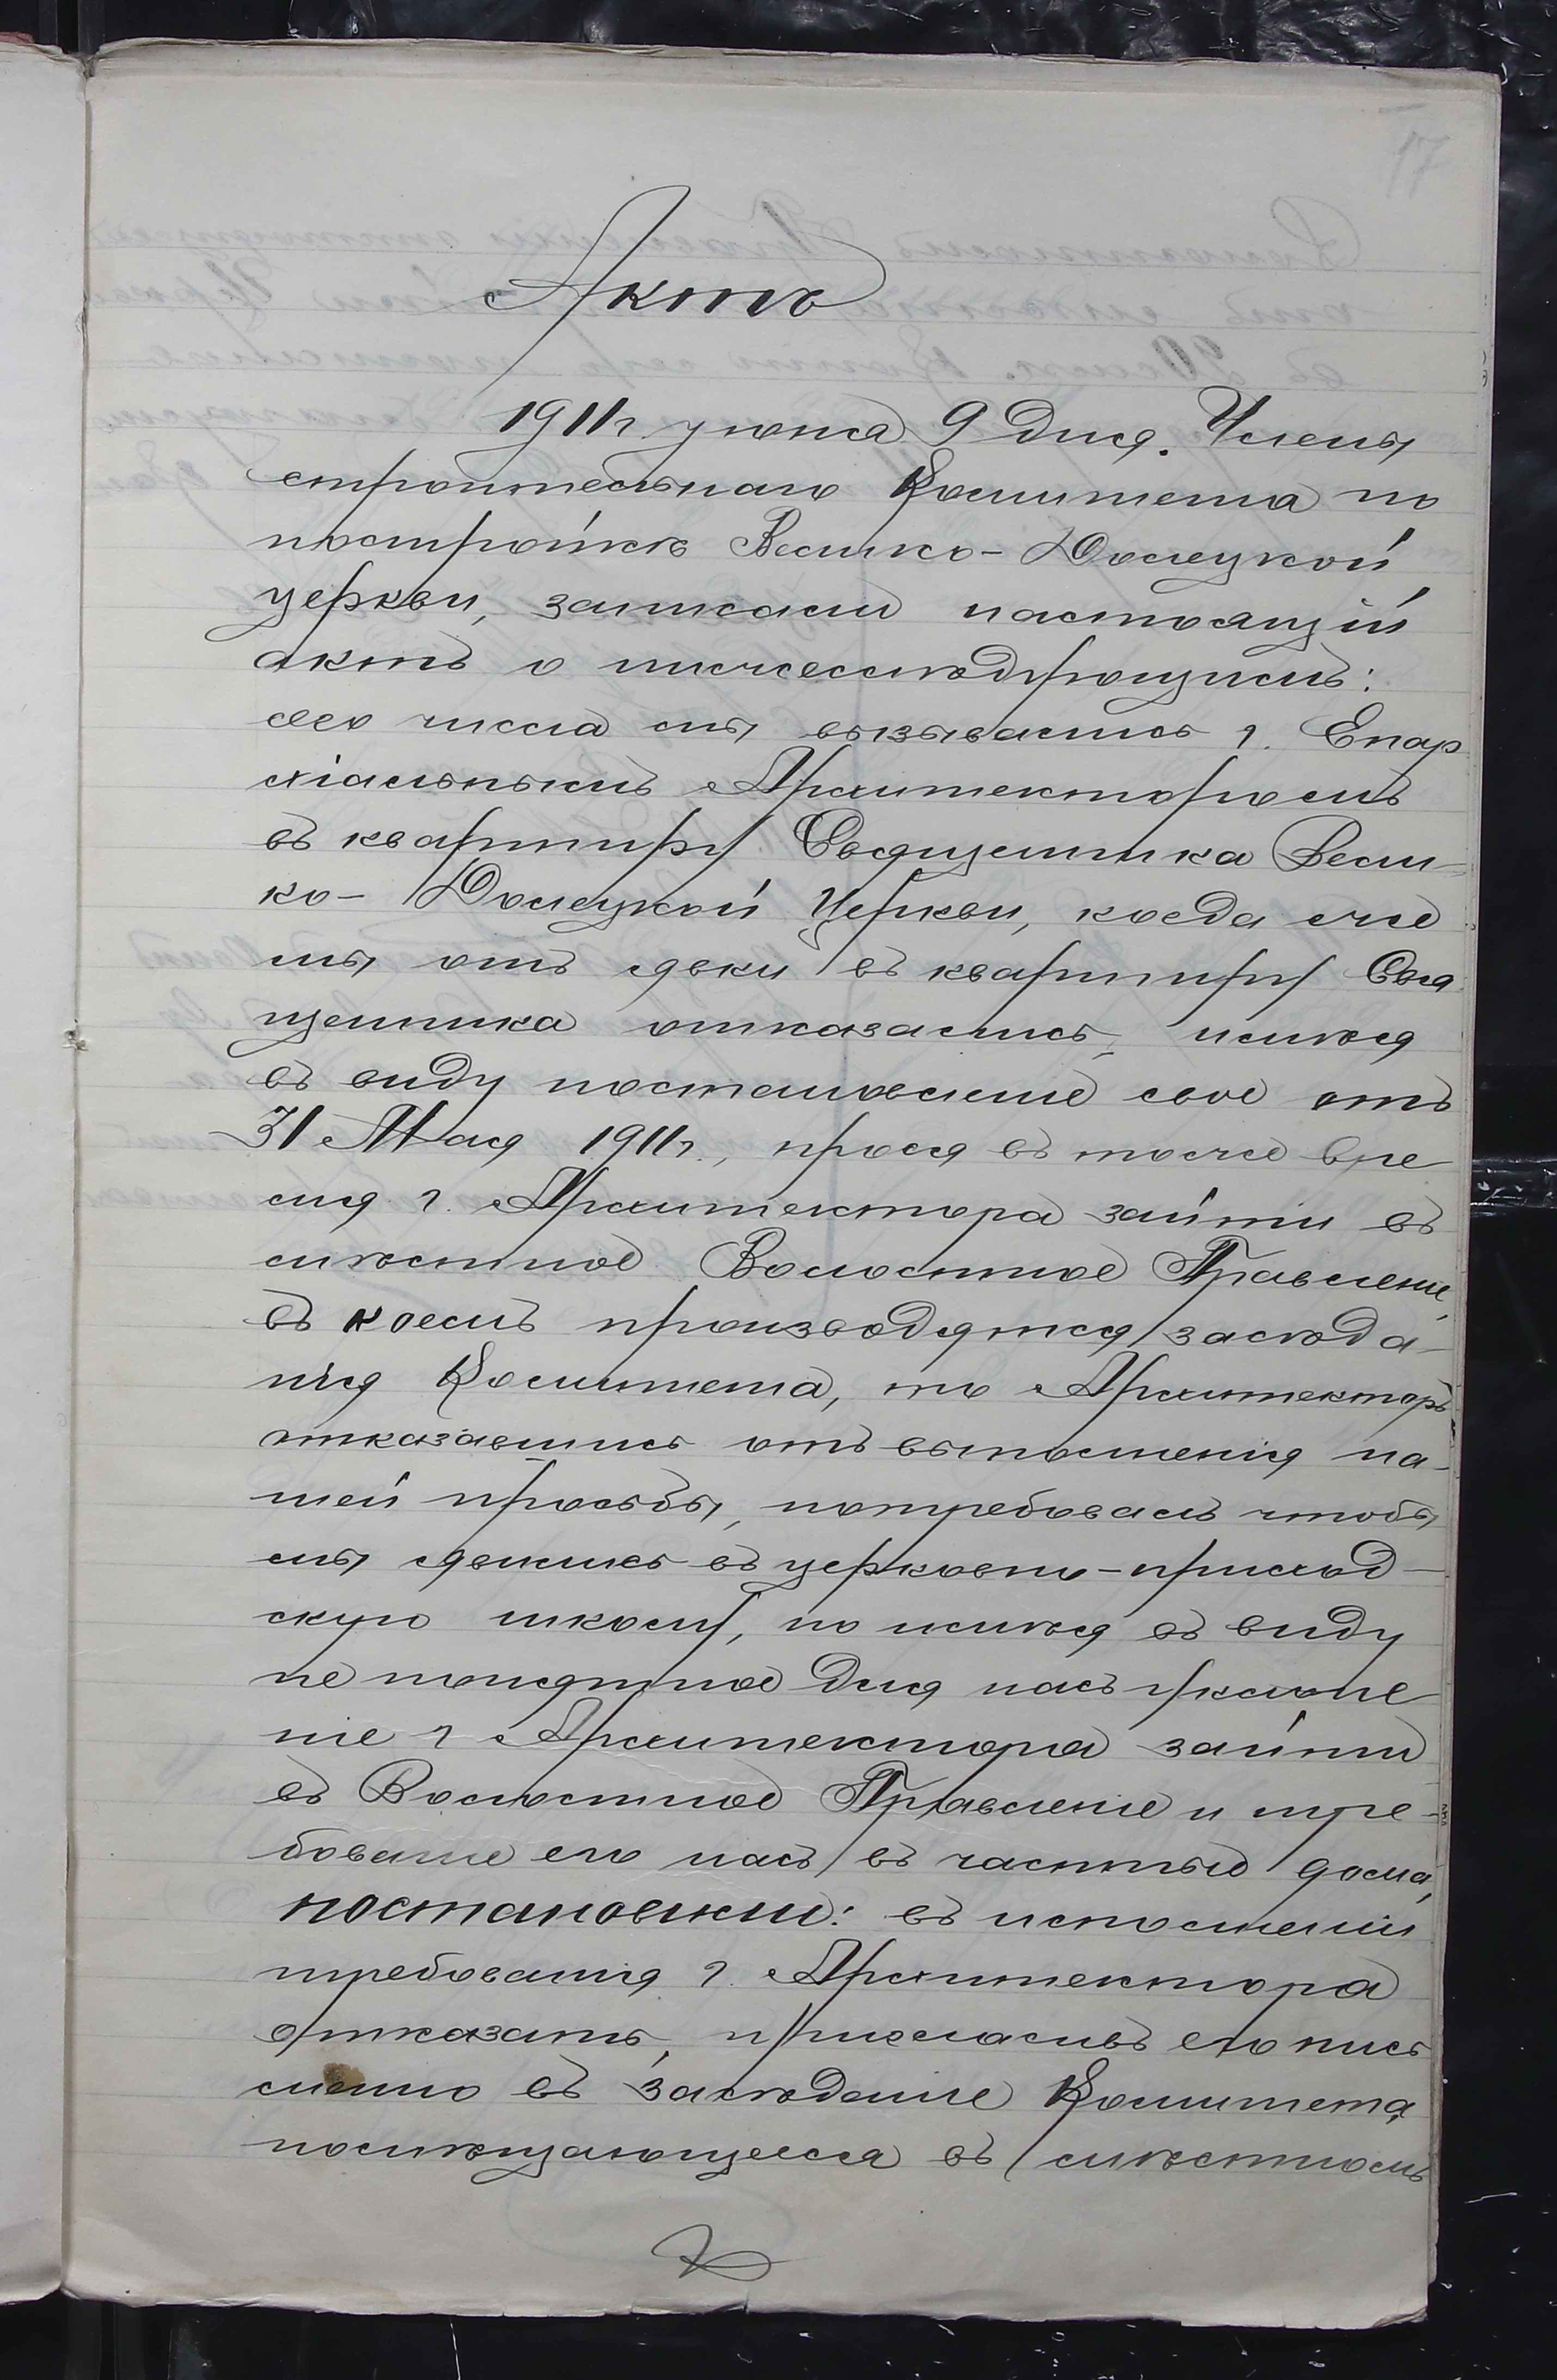 17
Актъ
1911 г. іюня 9 дня. Члены
строительнаго Комитета по
постройкѣ Велико-Долецкой
церкви, записали настоящій
актъ о нижеслѣдующемъ:
сего числа мы вызывались г. Епар
хіальнымъ Архитекторомъ
въ квартиру Священника Вели-
ко-Долецкой Церкви, когда же
мы отъ явки въ квартиру Свя
щенника отказались, имѣя
въ виду постановленіе свое отъ
31 Мая 1911 г., прося въ тоже вре
мя г. Архитектора зайти въ
мѣстное Волостное Правленіе,
въ коемъ производятся засѣда-
нія Комитета, то Архитекторъ
отказавшись отъ выполненія на-
шей просьбы, потребовалъ чтобы
мы явились въ церковно-приход-
скую школу, но имѣя въ виду
не понятное для насъ уклоне
ніе г. Архитектора зайти
въ Волостное Правленіе и тре-
бованіе его насъ въ частные дома,
постановили: въ исполненіи
требованія г. Архитектора
отказать, пригласивъ его пись
менно въ засѣданіе Комитета,
помѣщающегося въ мѣстномъ